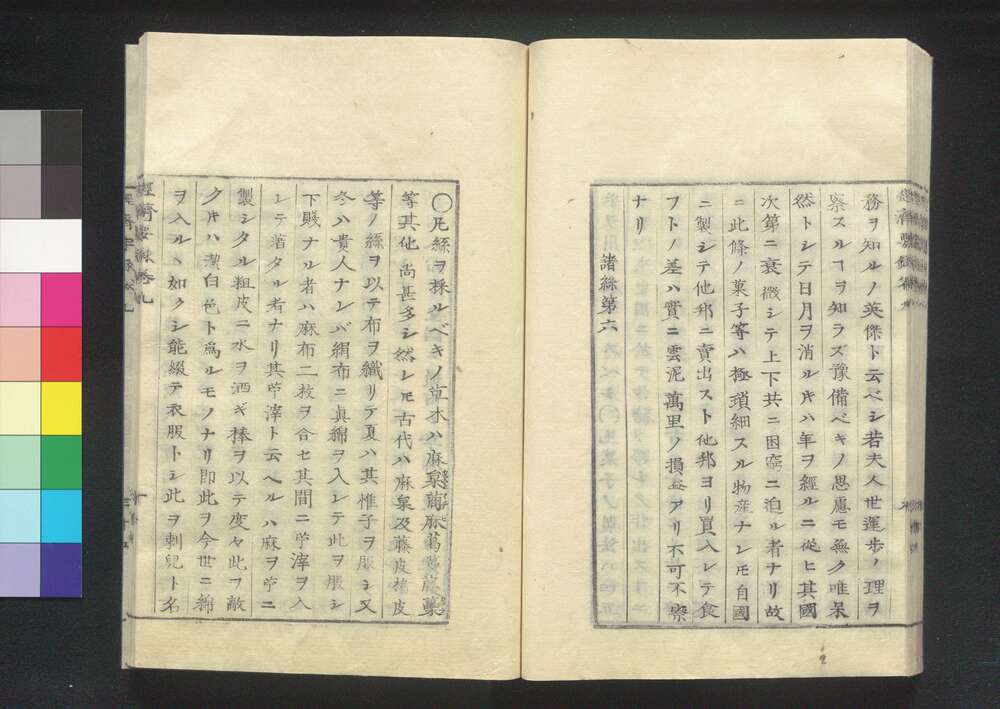 務ヲ知ルノ英傑ト云ベシ若夫人世運歩ノ理ヲ
察スルヿヲ知ラズ豫備ベキノ思慮モ無ク唯呆
然トシテ日月ヲ消ルキハ年ヲ經ルニ從ヒ其國
次第ニ衰微シテ上下共ニ困窮ニ迫ル者ナリ故
ニ此條ノ菓子等ハ極瑣細スル物産ナレモ自國
ニ製シテ他邦ニ賣出スト他邦ヨリ買入レテ食
フトノ差ハ實ニ雲泥萬里ノ損益アリ不可不察
ナリ
諸絲第六
〇凡絲ヲ採ルベキノ草木ハ麻枲 麻葛 藤
等其他尚甚多シ然レモ古代ハ麻枲及藤皮楮皮
等ノ絲ヲ以テ布ヲ織リテ夏ハ其惟子ヲ服シ又
冬ハ貴人ナレバ絹布ニ眞綿ヲ入レテ此ヲ服シ
下賤ナル者ハ麻布二枚ヲ合セ其間ニ苧滓ヲ入
レテ著タル者ナリ其苧滓ト云ヘルハ麻ヲ苧ニ
製シタル粗皮ニ水ヲ洒ギ棒ヲ以テ度々此ヲ敲
クキハ潔白色ト爲ルモノナリ即此ヲ今世ニ綿
ヲ入ルヽ如クシ能綴テ衣服トシ此ヲ刺兒ト名
經濟要録卷九